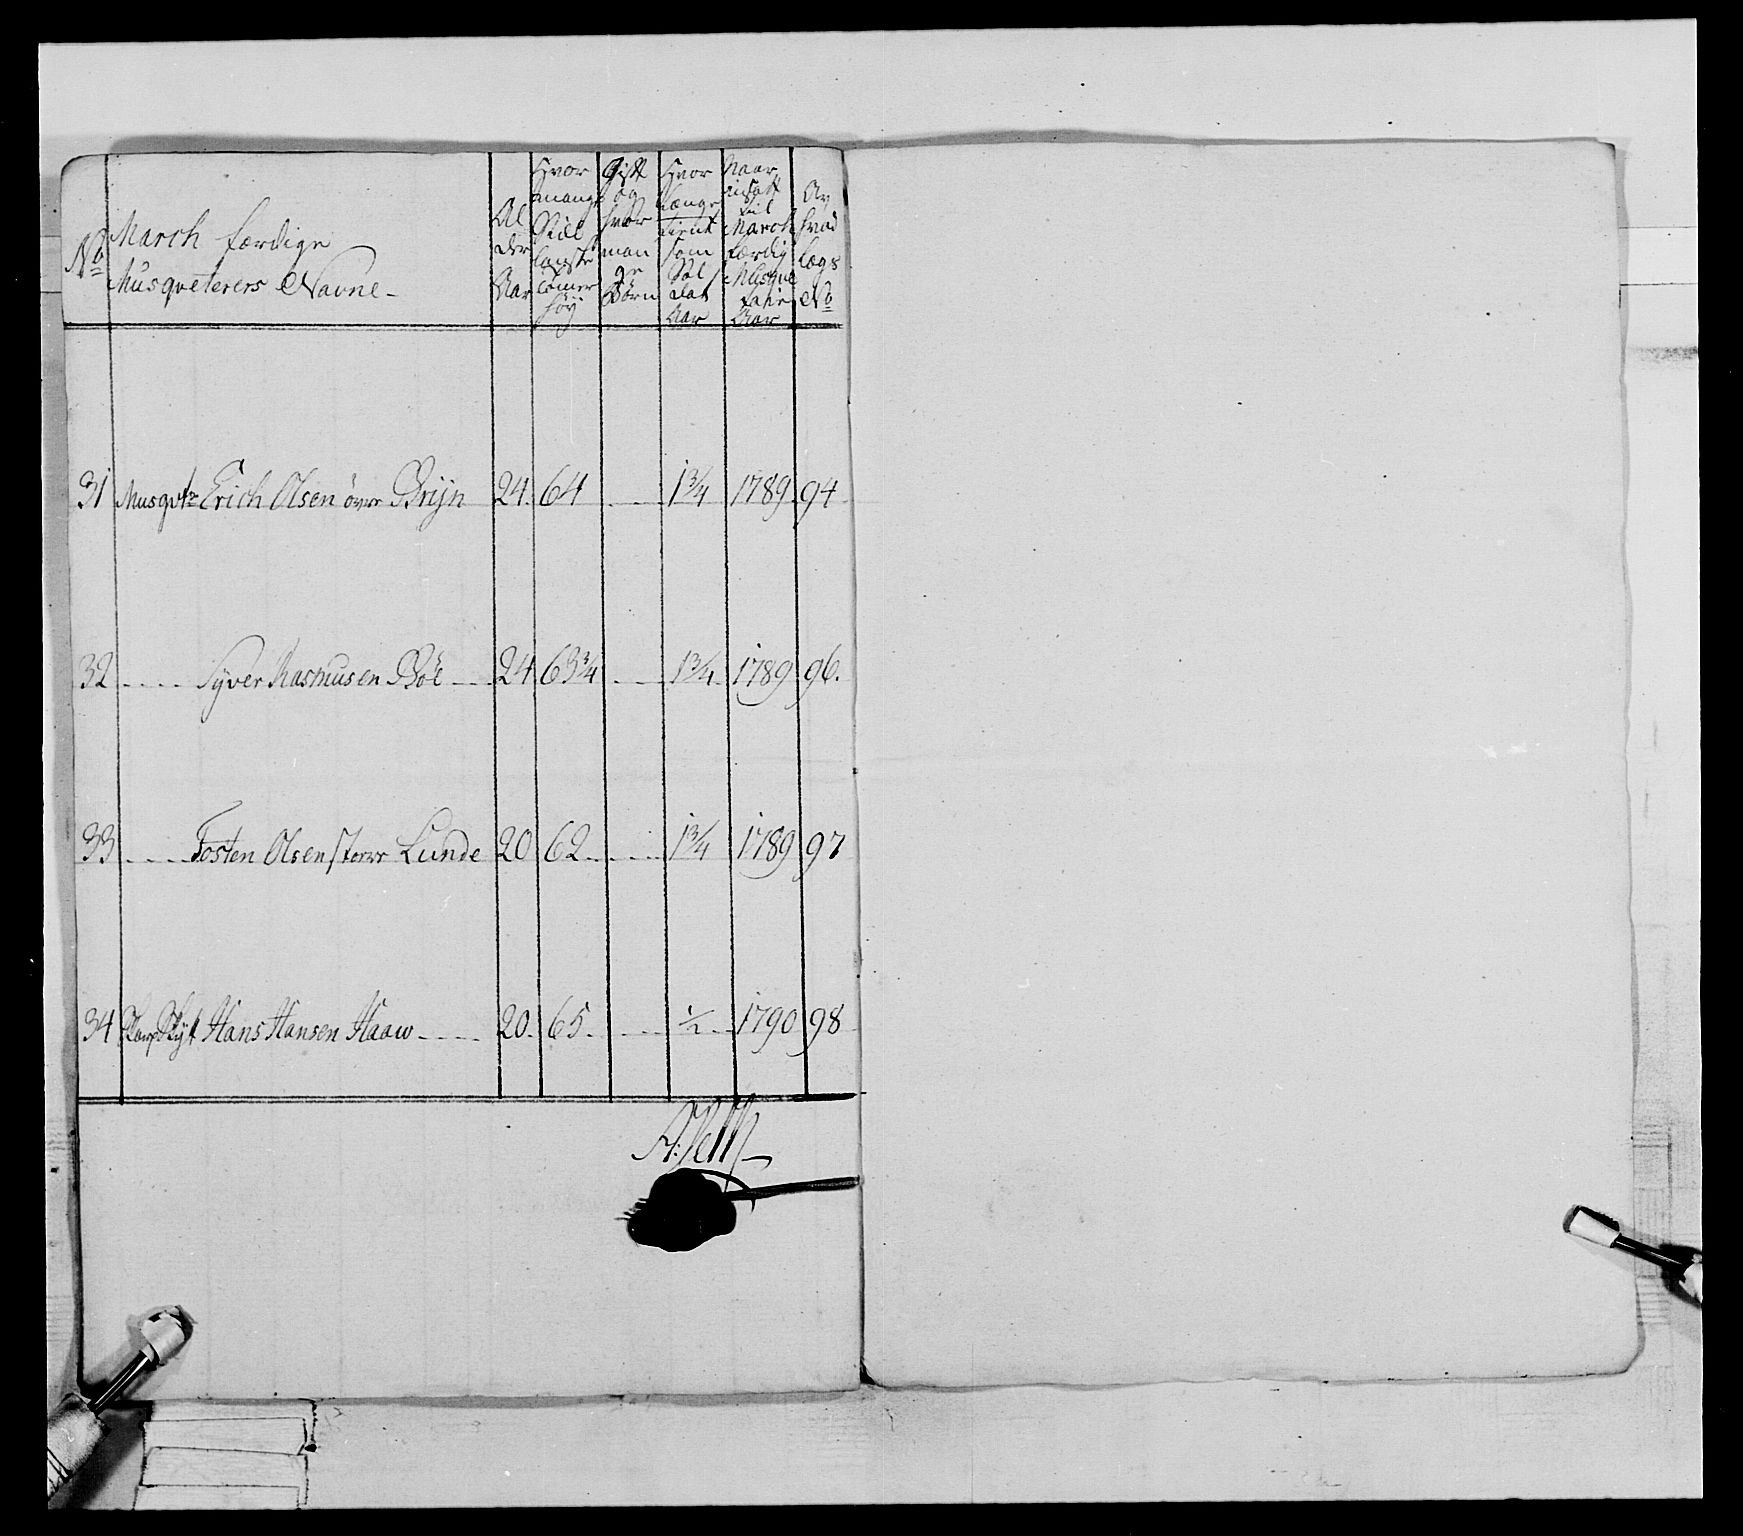 No
March færdige
Musqveterers Navne -
Al
der
Aar
Hvor
mange
Siæl
landske
Tomer
høy
Gift
og
hvor
man
ge
Børn
Hvor
længe
tient
som
Sol
dat
Aar
Naar
indsatt
til
March
færdig
Musqve
Aar
Av
hvad
lægs
No
31 Musqvtr Erich Olsen øvre Brijn 24. 64 1 3/4 1789 94
32 Syver Rasmusen Bøe 24 63 3/4 1 3/4 1789 96.
33 Tosten Olsen store Lunde 20 62 1 3/4 1789 97
34 SkarpSkyt Hans Hansen Haaw 20. 65. 1/2 1790 98